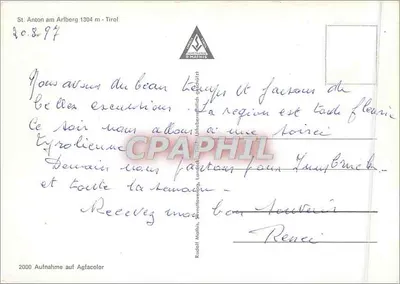 St. Anton am Arlberg 1304 m - Tirol
20.8.97
Nous avons du beau temps et faisons de
belles excursions. La region est toute fleurie
Ce soir nous allons à une soirée
tyrolienne
CPARPHIL
Demain nous partons pour Innsbruck
et toute la semaine.
Recevez mon bon souvenir
Renée
Rudolf Mathis,
2000 Aufnahme auf Agfacolor